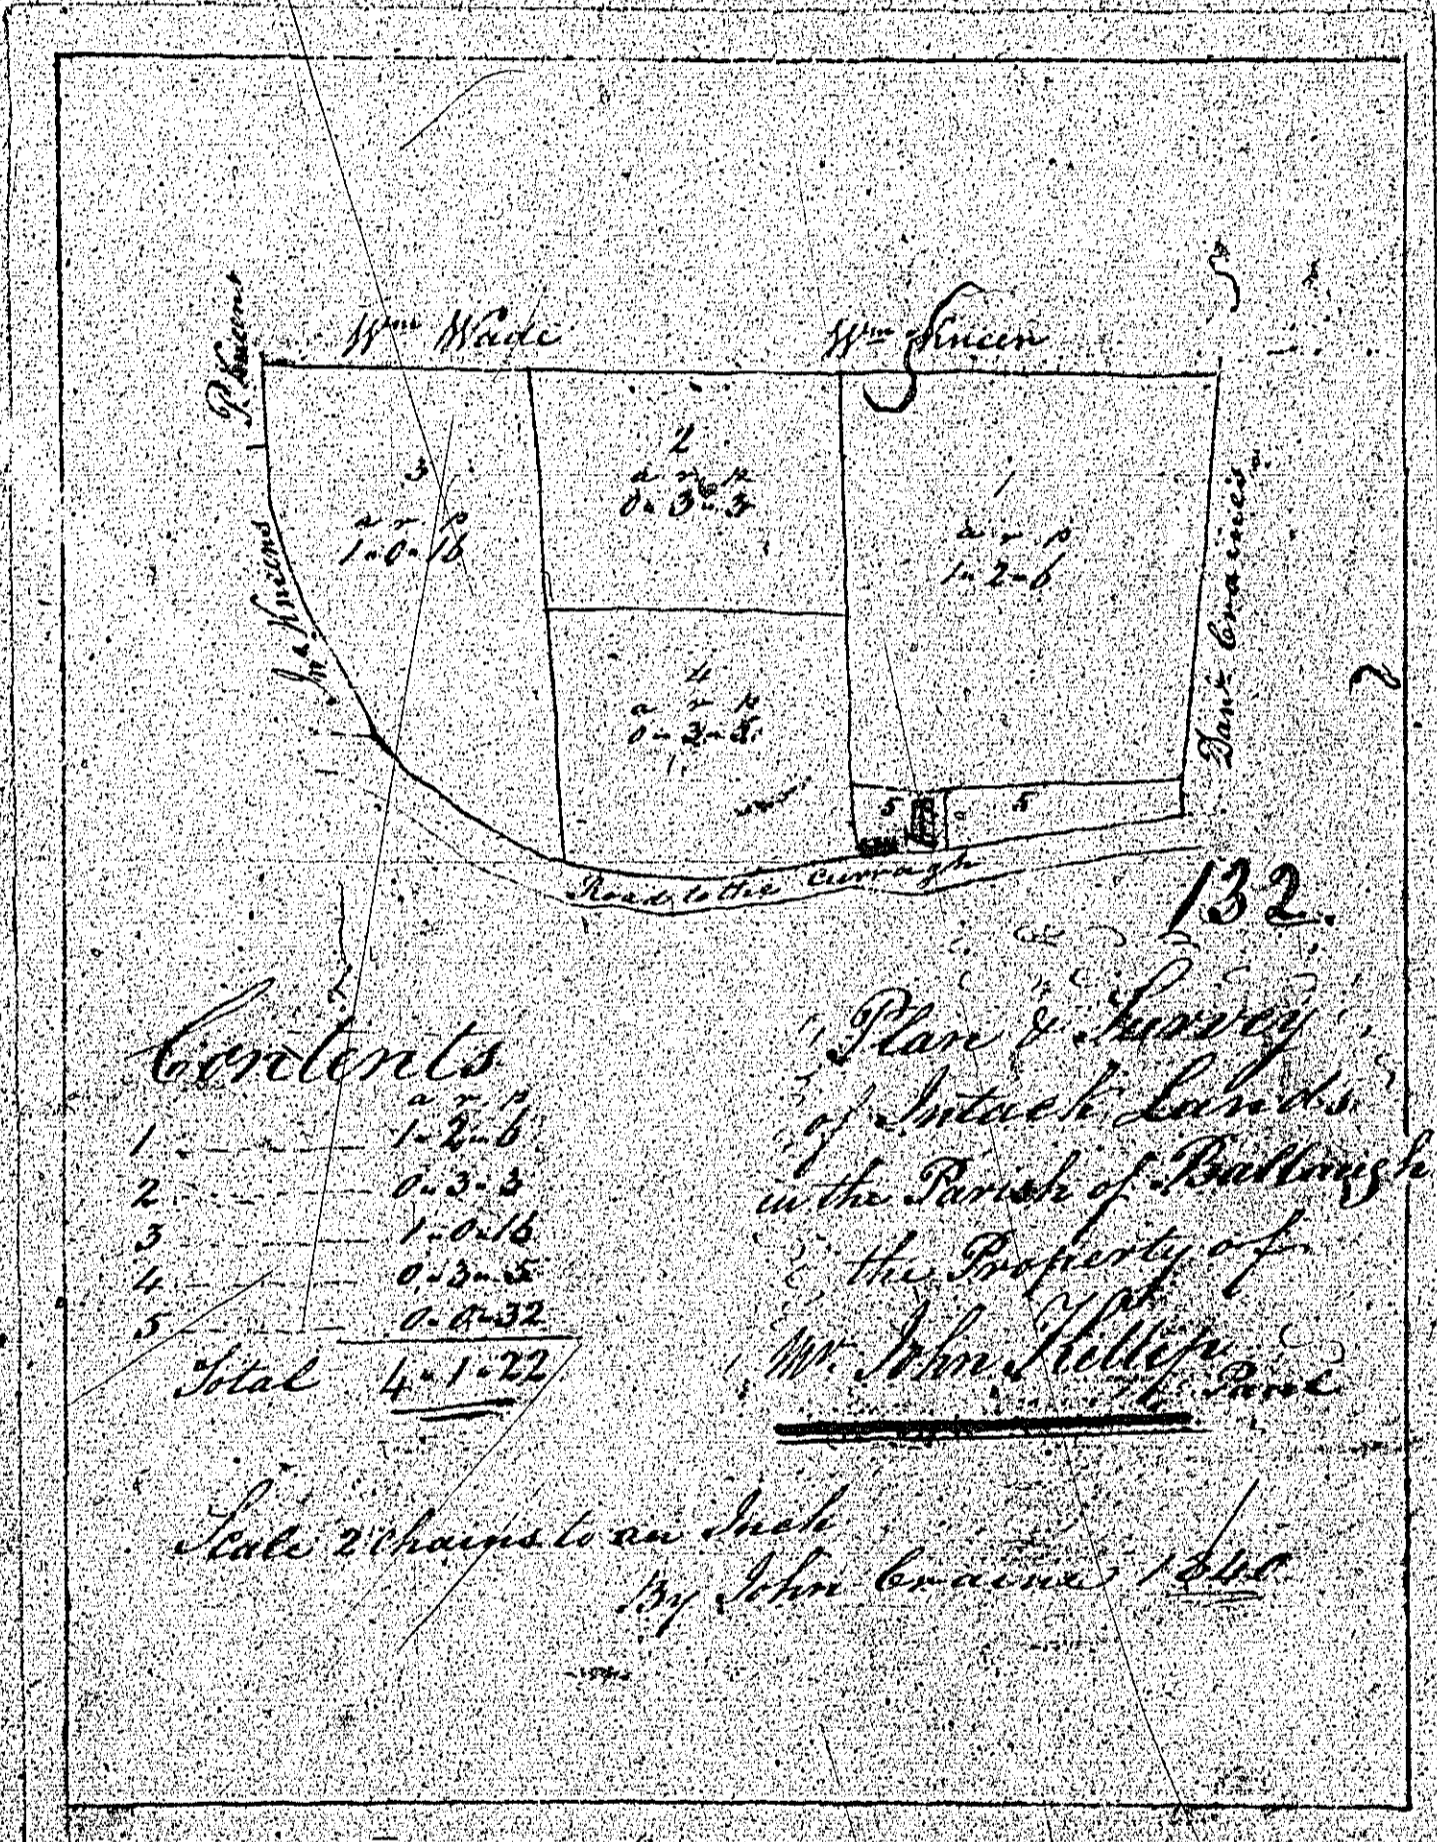 Wm Wade
Wm Kneen
P Kneens
Jn° Kneens
Danl Craines
3
a r p
1 " 0 " 16
2
a r p
0 " 3 " 3
1
a r p
1 " 2 " 6
4
a r p
0 " 3 " 5
5
5
Road to the Curragh
132.
Contents
a r p
1 1 " 2 " 6
2 0 " 3 " 3
3 1 " 0 " 16
4 0 " 3 " 5
5 0 " 0 " 32
Total 4 " 1 " 22
Plan & Survey
of Intack Lands
in the Parish of Ballaugh
the Property of
Mr. John Killip
Scale 2 Chains to an Inch
By John Craine 1840